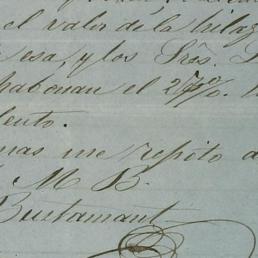 el valor de la hilaz
esa, y los Sres.
abonan el 2
ento.
mas me repito a
M B.
Bustamant